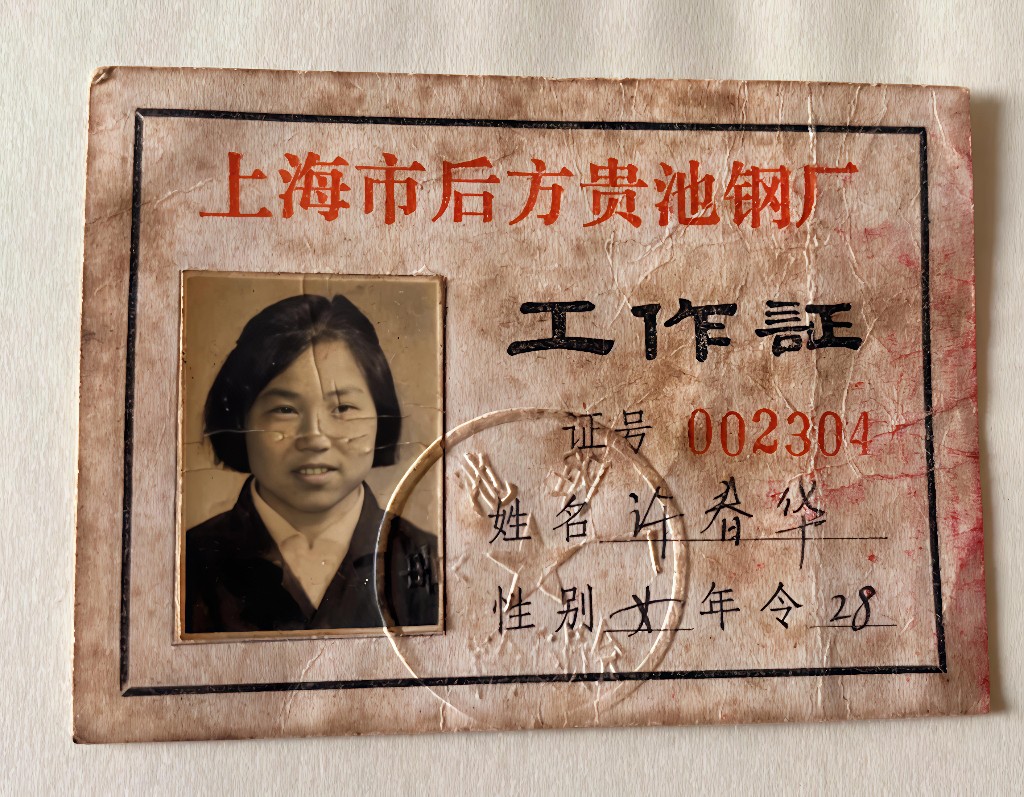 上海市后方贵池钢厂
工作証
证号 002304
姓名 许春华
性别 女 年令 28